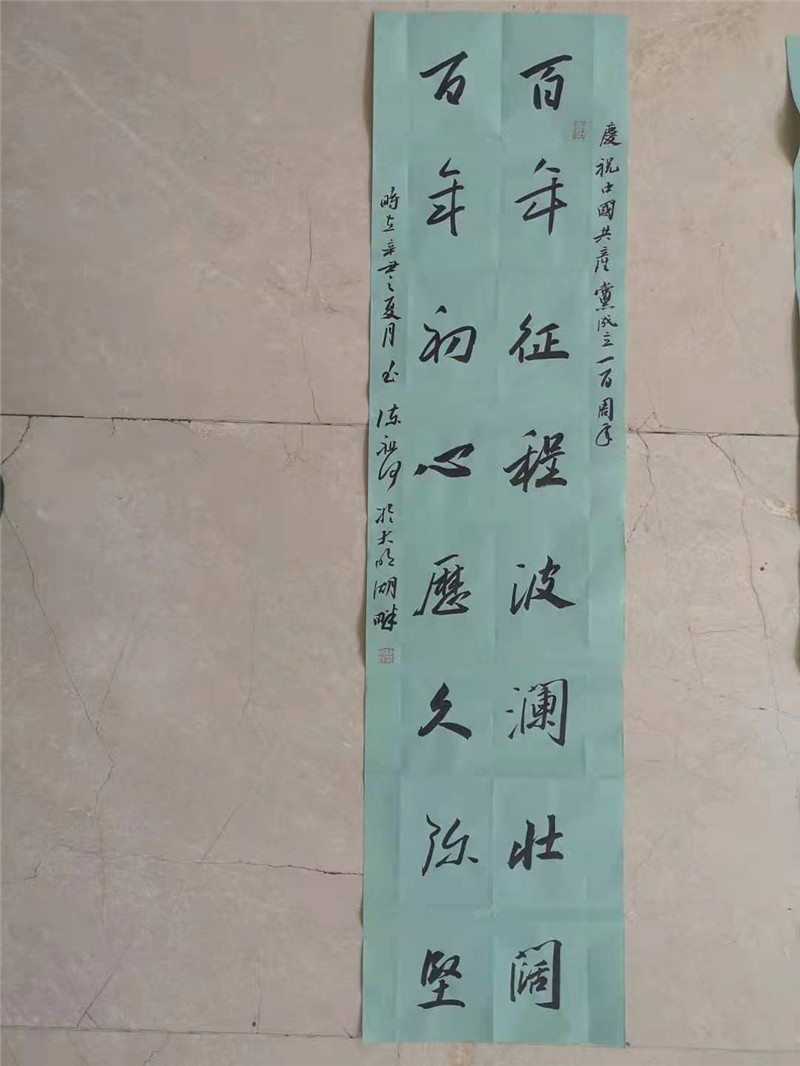 慶祝中國共產黨成立一百周年
百年征程波澜壮阔
百年初心歷久弥堅
時在辛丑之夏月书 於大明湖畔